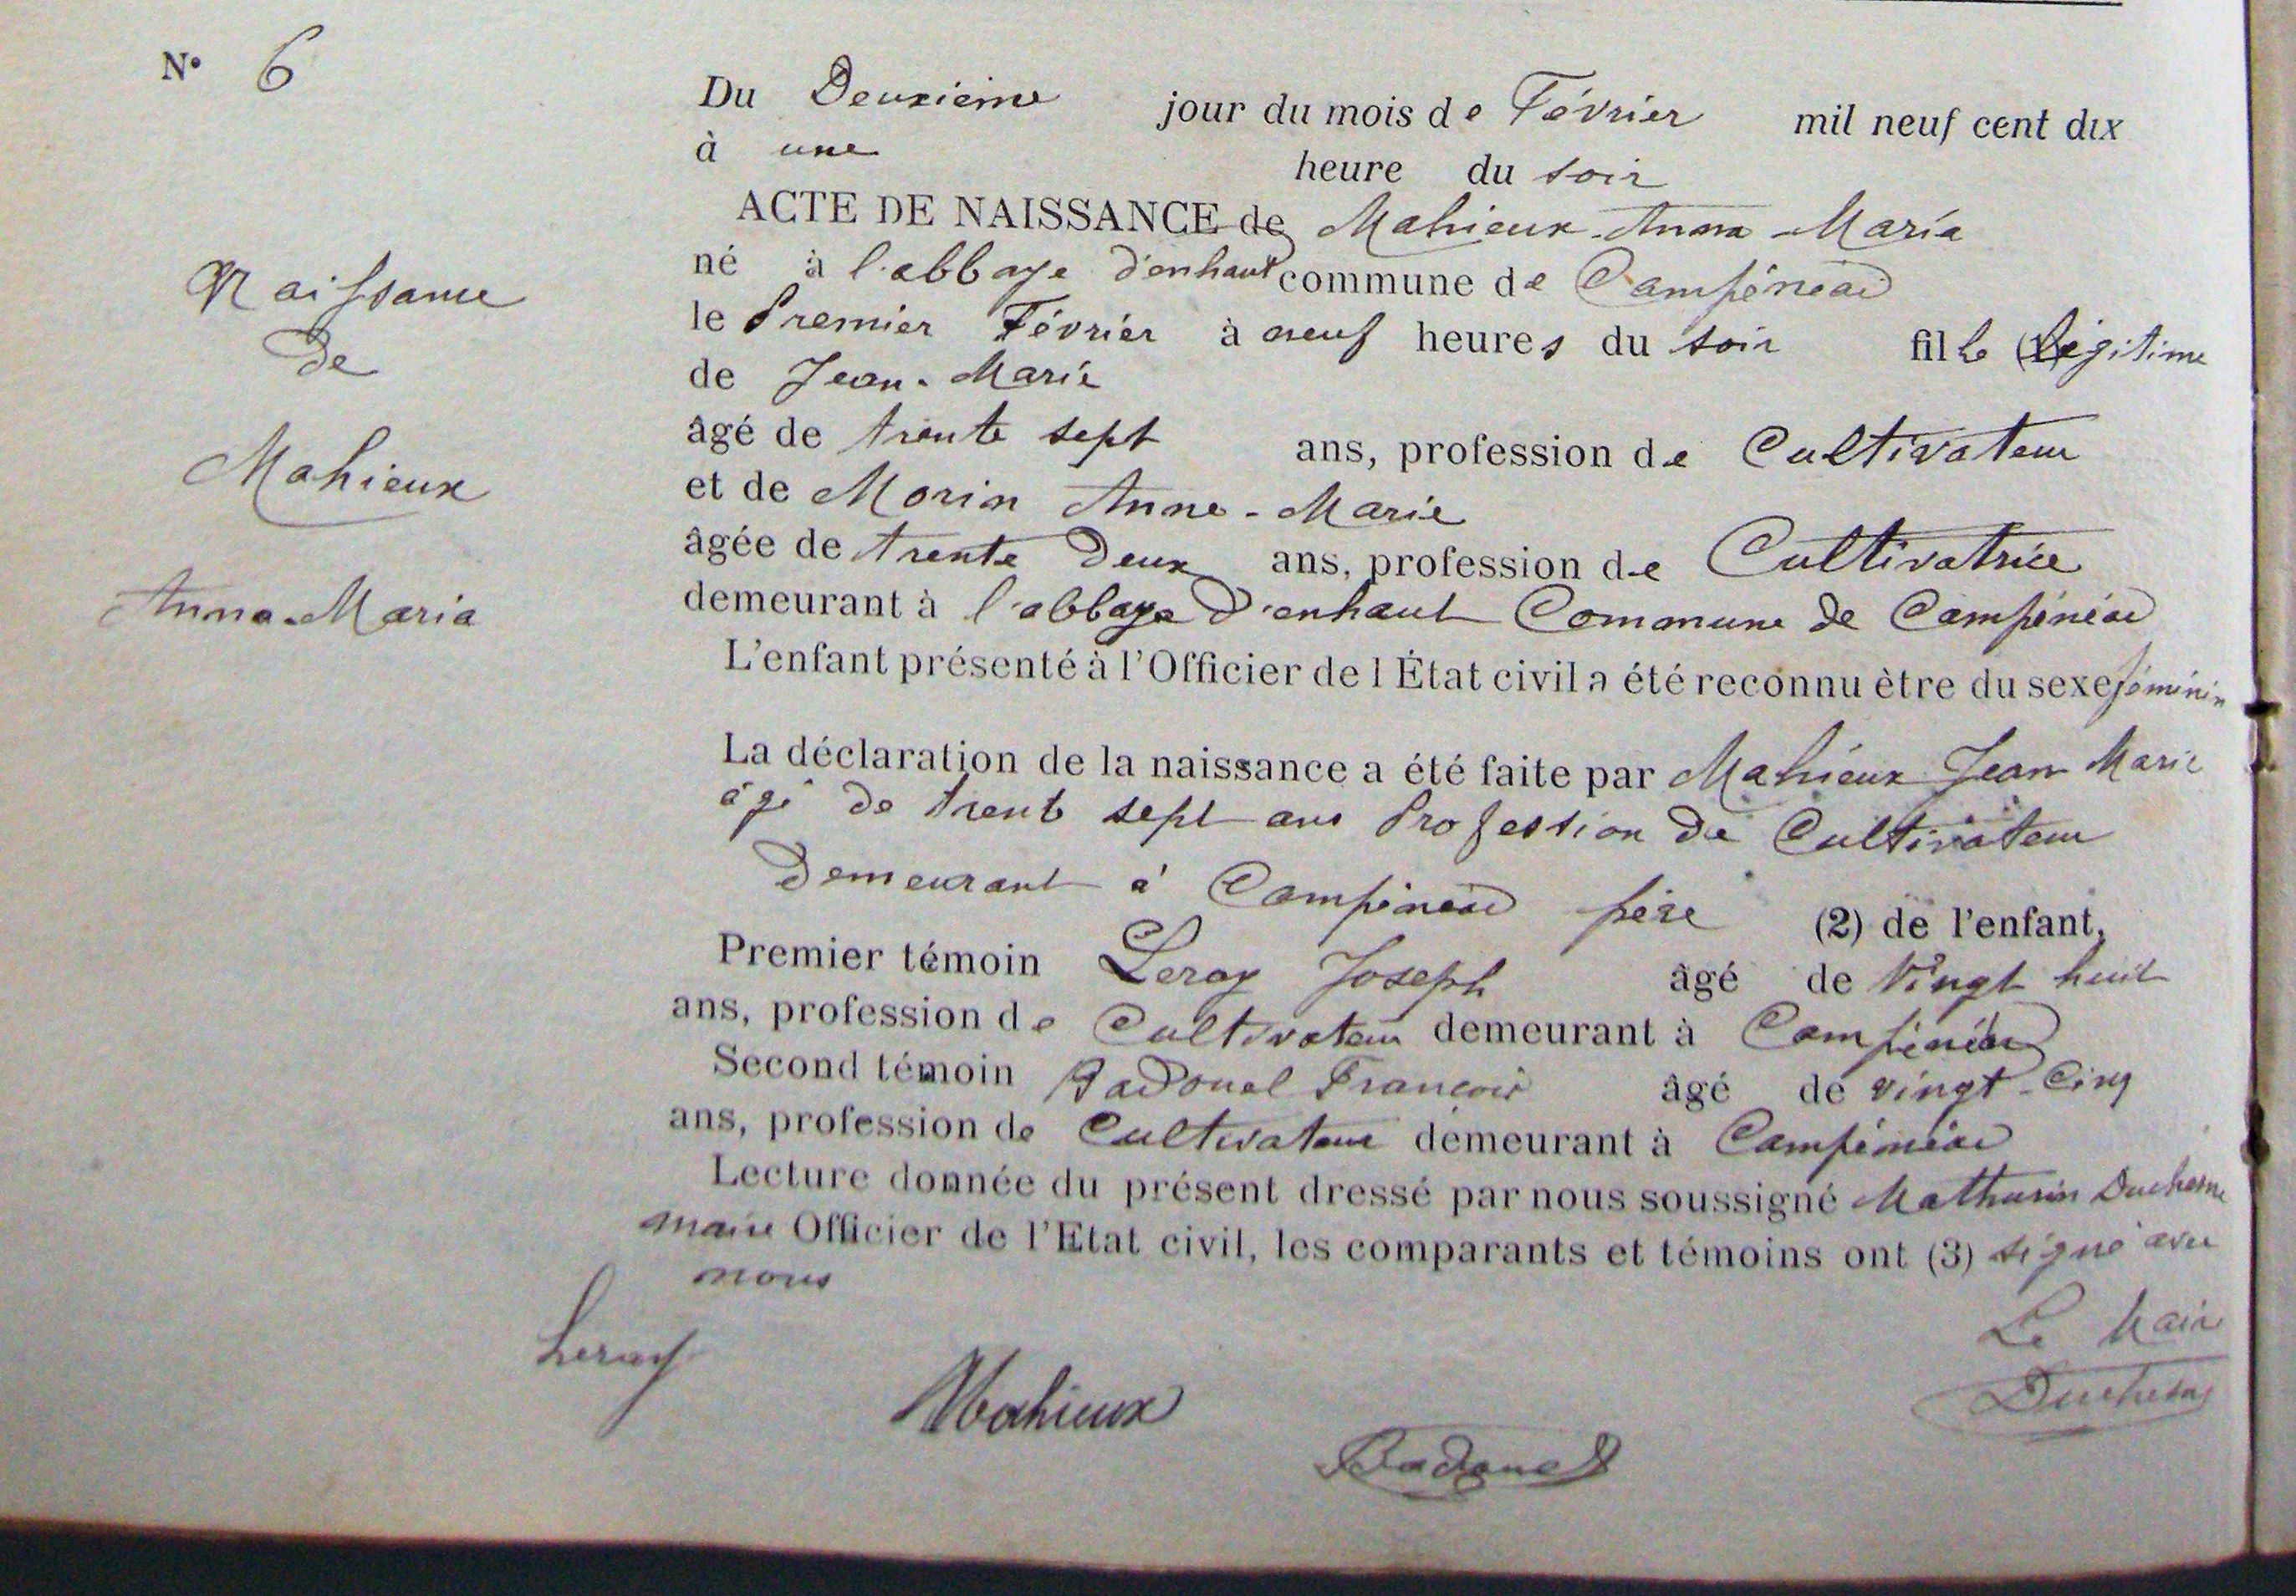 N° 6
Naissance
de
Mahieux
Anna-Maria
Du Deuxième jour du mois de Février mil neuf cent dix
à une heure du soir
ACTE DE NAISSANCE de Mahieux Anna-Maria
né à l'abbaye d'enhaut commune de Campénéac
le Premier Février à neuf heures du soir fille (1) légitime
de Jean-Marie
âgé de trente sept ans, profession de Cultivateur
et de Morin Anne-Marie
âgée de trente deux ans, profession de Cultivatrice
demeurant à l'abbaye d'enhaut Commune de Campénéac
L'enfant présenté à l'Officier de l'État civil a été reconnu être du sexe féminin
La déclaration de la naissance a été faite par Mahieux Jean Marie
âgé de trente sept ans Profession de Cultivateur
Demeurant à Campénéac père (2) de l'enfant,
Premier témoin Leray Joseph âgé de Vingt huit
ans, profession de Cultivateur demeurant à Campénéac
Second témoin Badouel Francois âgé de vingt-cinq
ans, profession de Cultivateur demeurant à Campénéac
Lecture donnée du présent dressé par nous soussigné Mathurin Duchesne
maire Officier de l'Etat civil, les comparants et témoins ont (3) signé avec
nous
Leray
Mahieux
Badouel
Le Maire
Duchesne